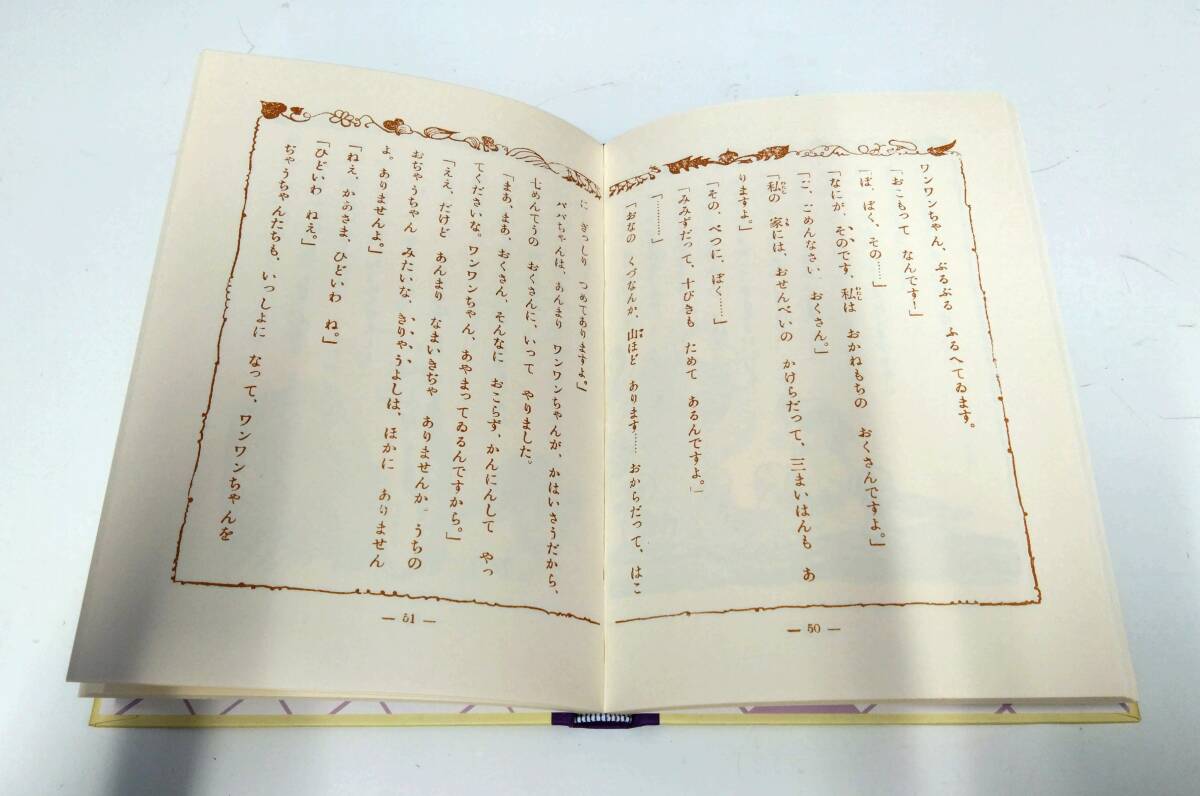 ワンワンちゃん、ぶるぶる ふるへてゐます。
「おこもって なんです！」
「ぼ、ぼく、その……」
「なにが、そのです、私は おかねもちの おくさんですよ。」
「ご、ごめんなさい、おくさん。」
「私の 家には、おせんべいの かけらだって、三まいはんも あ
りますよ。」
「その、べつに、ぼく……」
「みみずだって、十ぴきも ためて あるんですよ。」
「………」
「おなの くづなんか、山ほど あります…… おからだって、はこ
— 50 —
に ぎっしり つめてありますよ。」
パパちゃんは、あんまり ワンワンちゃんが、かはいさうだから、
七めんてうの おくさんに、いって やりました。
「まあ、まあ、おくさん、そんなに おこらず、かんにんして やっ
てくださいな。ワンワンちゃん、あやまってゐるんですから。」
「ええ、だけど あんまり なまいきぢゃ ありませんか。うちの
おぢゃうちゃん みたいな、きりゃうよしは、ほかに ありません
よ。ありませんよ。」
「ねえ、かあさま、ひどいわ ね。」
「ひどいわ ねえ。」
ぢゃうちゃんたちも、いっしょに なって、ワンワンちゃんを
— 51 —